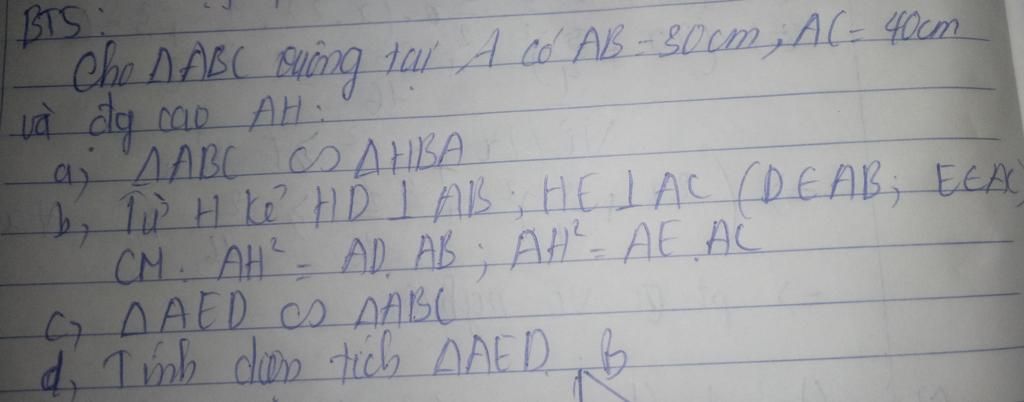 BT5:
Cho ΔABC vuông tại A có AB = 30cm; AC = 40cm
và đg cao AH:
a, ΔABC ∽ ΔHBA
b, Từ H kẻ HD ⊥ AB; HE ⊥ AC (D∈AB; E∈AC)
CM. AH² = AD. AB; AH² = AE. AC
c, ΔAED ∽ ΔABC
d, Tính diện tích ΔAED
B